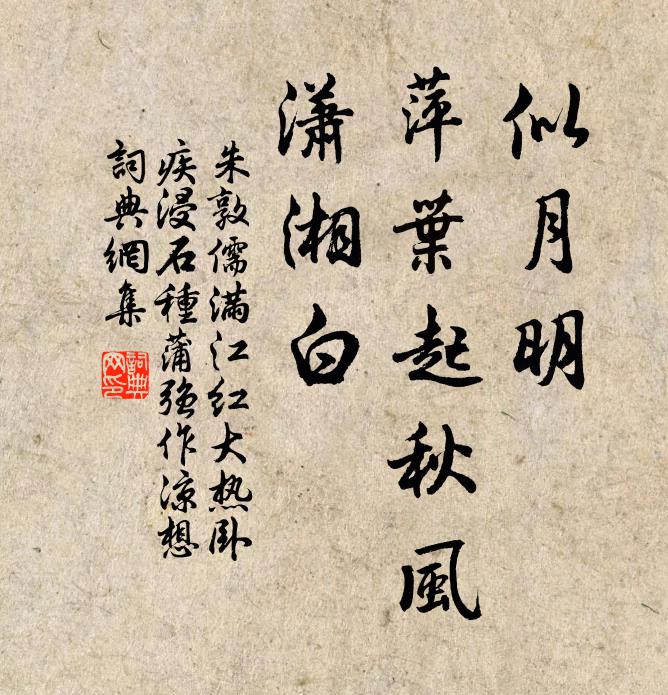 似月明
萍葉起秋風
瀟湘白
朱敦儒滿江紅大热卧
疾浸石種蒲强作凉想
詞典網集
詞典網印